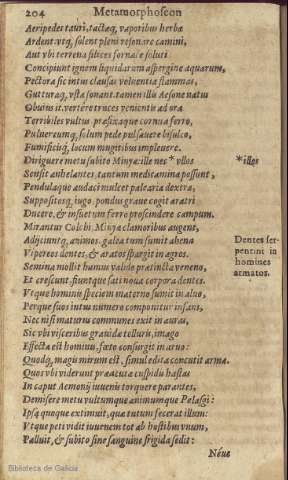 204 Metamorphoseon
Aeripedes tauri, tactaeq, vaporibus herbae
Ardent. vtq, solent pleni resonare camini,
Aut vbi terrena silices fornace soluti
Concipiunt ignem liquidarum aspergine aquarum,
Pectora sic intus clausas voluentia flammas,
Gutturaq, vsta sonant. tamen illis Aesone natus
Obuius it. vertêre truces venientis ad ora
Terribiles vultus praefixaque cornua ferro,
Pulvereumq, solum pede pulsauere bisulco,
Fumificisq, locum mugitibus impleuere.
Diriguere metu subito Minyae: ille nec * vllos
* illos
Sensit anhelantes. tantum medicamina possunt,
Pendulaque audaci mulcet palearia dextra,
Suppositosq, iugo. pondus graue cogit aratri
Ducere, & insuetum ferro proscindere campum.
Mirantur Colchi. Minyae clamoribus augent,
Adijciuntq, animos. galea tum sumit ahena
Vipereos dentes, & aratos spargit in agros.
Dentes ser-
pentini in
homines
armatos.
Semina mollit humus valido praetincta veneno,
Et crescunt. fiuntque sati noua corpora dentes.
Vtque hominis speciem materna sumit in aluo,
Perque suos intus numero componitur infans,
Nec nisi maturus communes exit in auras,
Sic vbi visceribus grauidae telluris imago
Effecta est hominis, foeto consurgit in aruo:
Quodq, magis mirum est, simul edita concutit arma.
Quos vbi viderunt praeacuta cuspidis hastas
In caput Aemonij iuuenis torquere parantes,
Demisere metu vultumque animumque Pelasgi:
Ipsa quoque extimuit, quae tutum fecerat illum:
Vtque peti vidit iuuenem tot ab hostibus vnum,
Palluit, & subito sine sanguine frigida sedit:
Biblioteca de Galicia